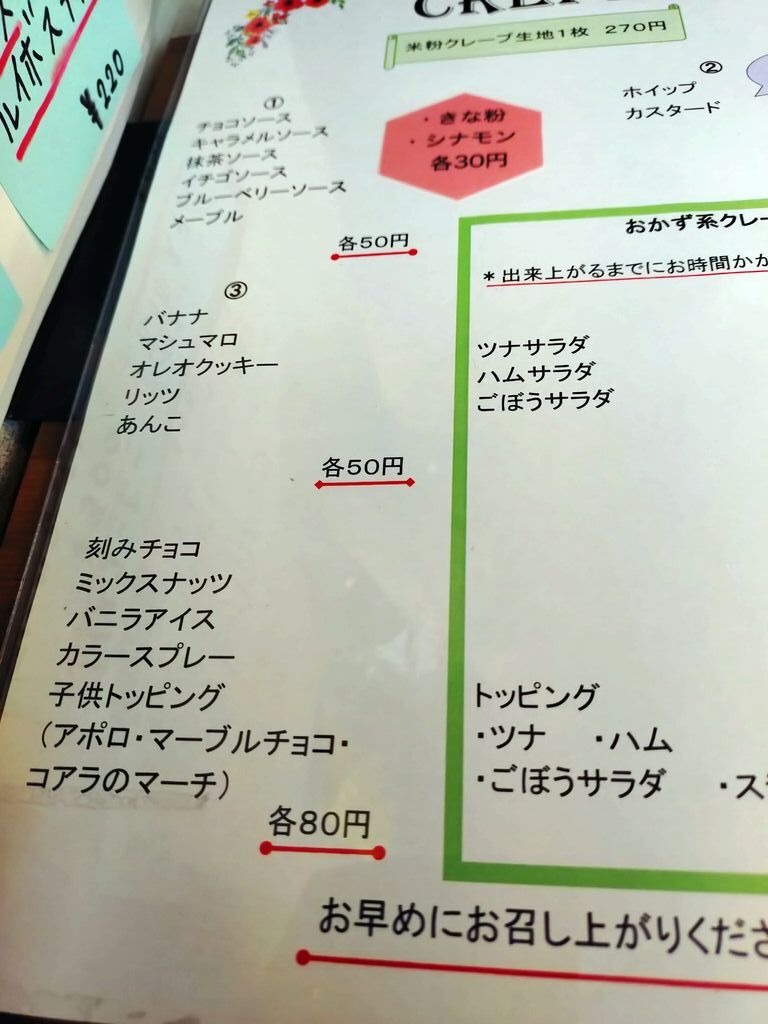 ルイボステ
¥220
CREP
米粉クレープ生地1枚 270円
①
チョコソース
キャラメルソース
抹茶ソース
イチゴソース
ブルーベリーソース
メープル
各50円
・きな粉
・シナモン
各30円
②
ホイップ
カスタード
③
バナナ
マシュマロ
オレオクッキー
リッツ
あんこ
各50円
刻みチョコ
ミックスナッツ
バニラアイス
カラースプレー
子供トッピング
（アポロ・マーブルチョコ・
コアラのマーチ）
各80円
おかず系クレー
＊出来上がるまでにお時間かか
ツナサラダ
ハムサラダ
ごぼうサラダ
トッピング
・ツナ ・ハム
・ごぼうサラダ ・ス
お早めにお召し上がりくださ